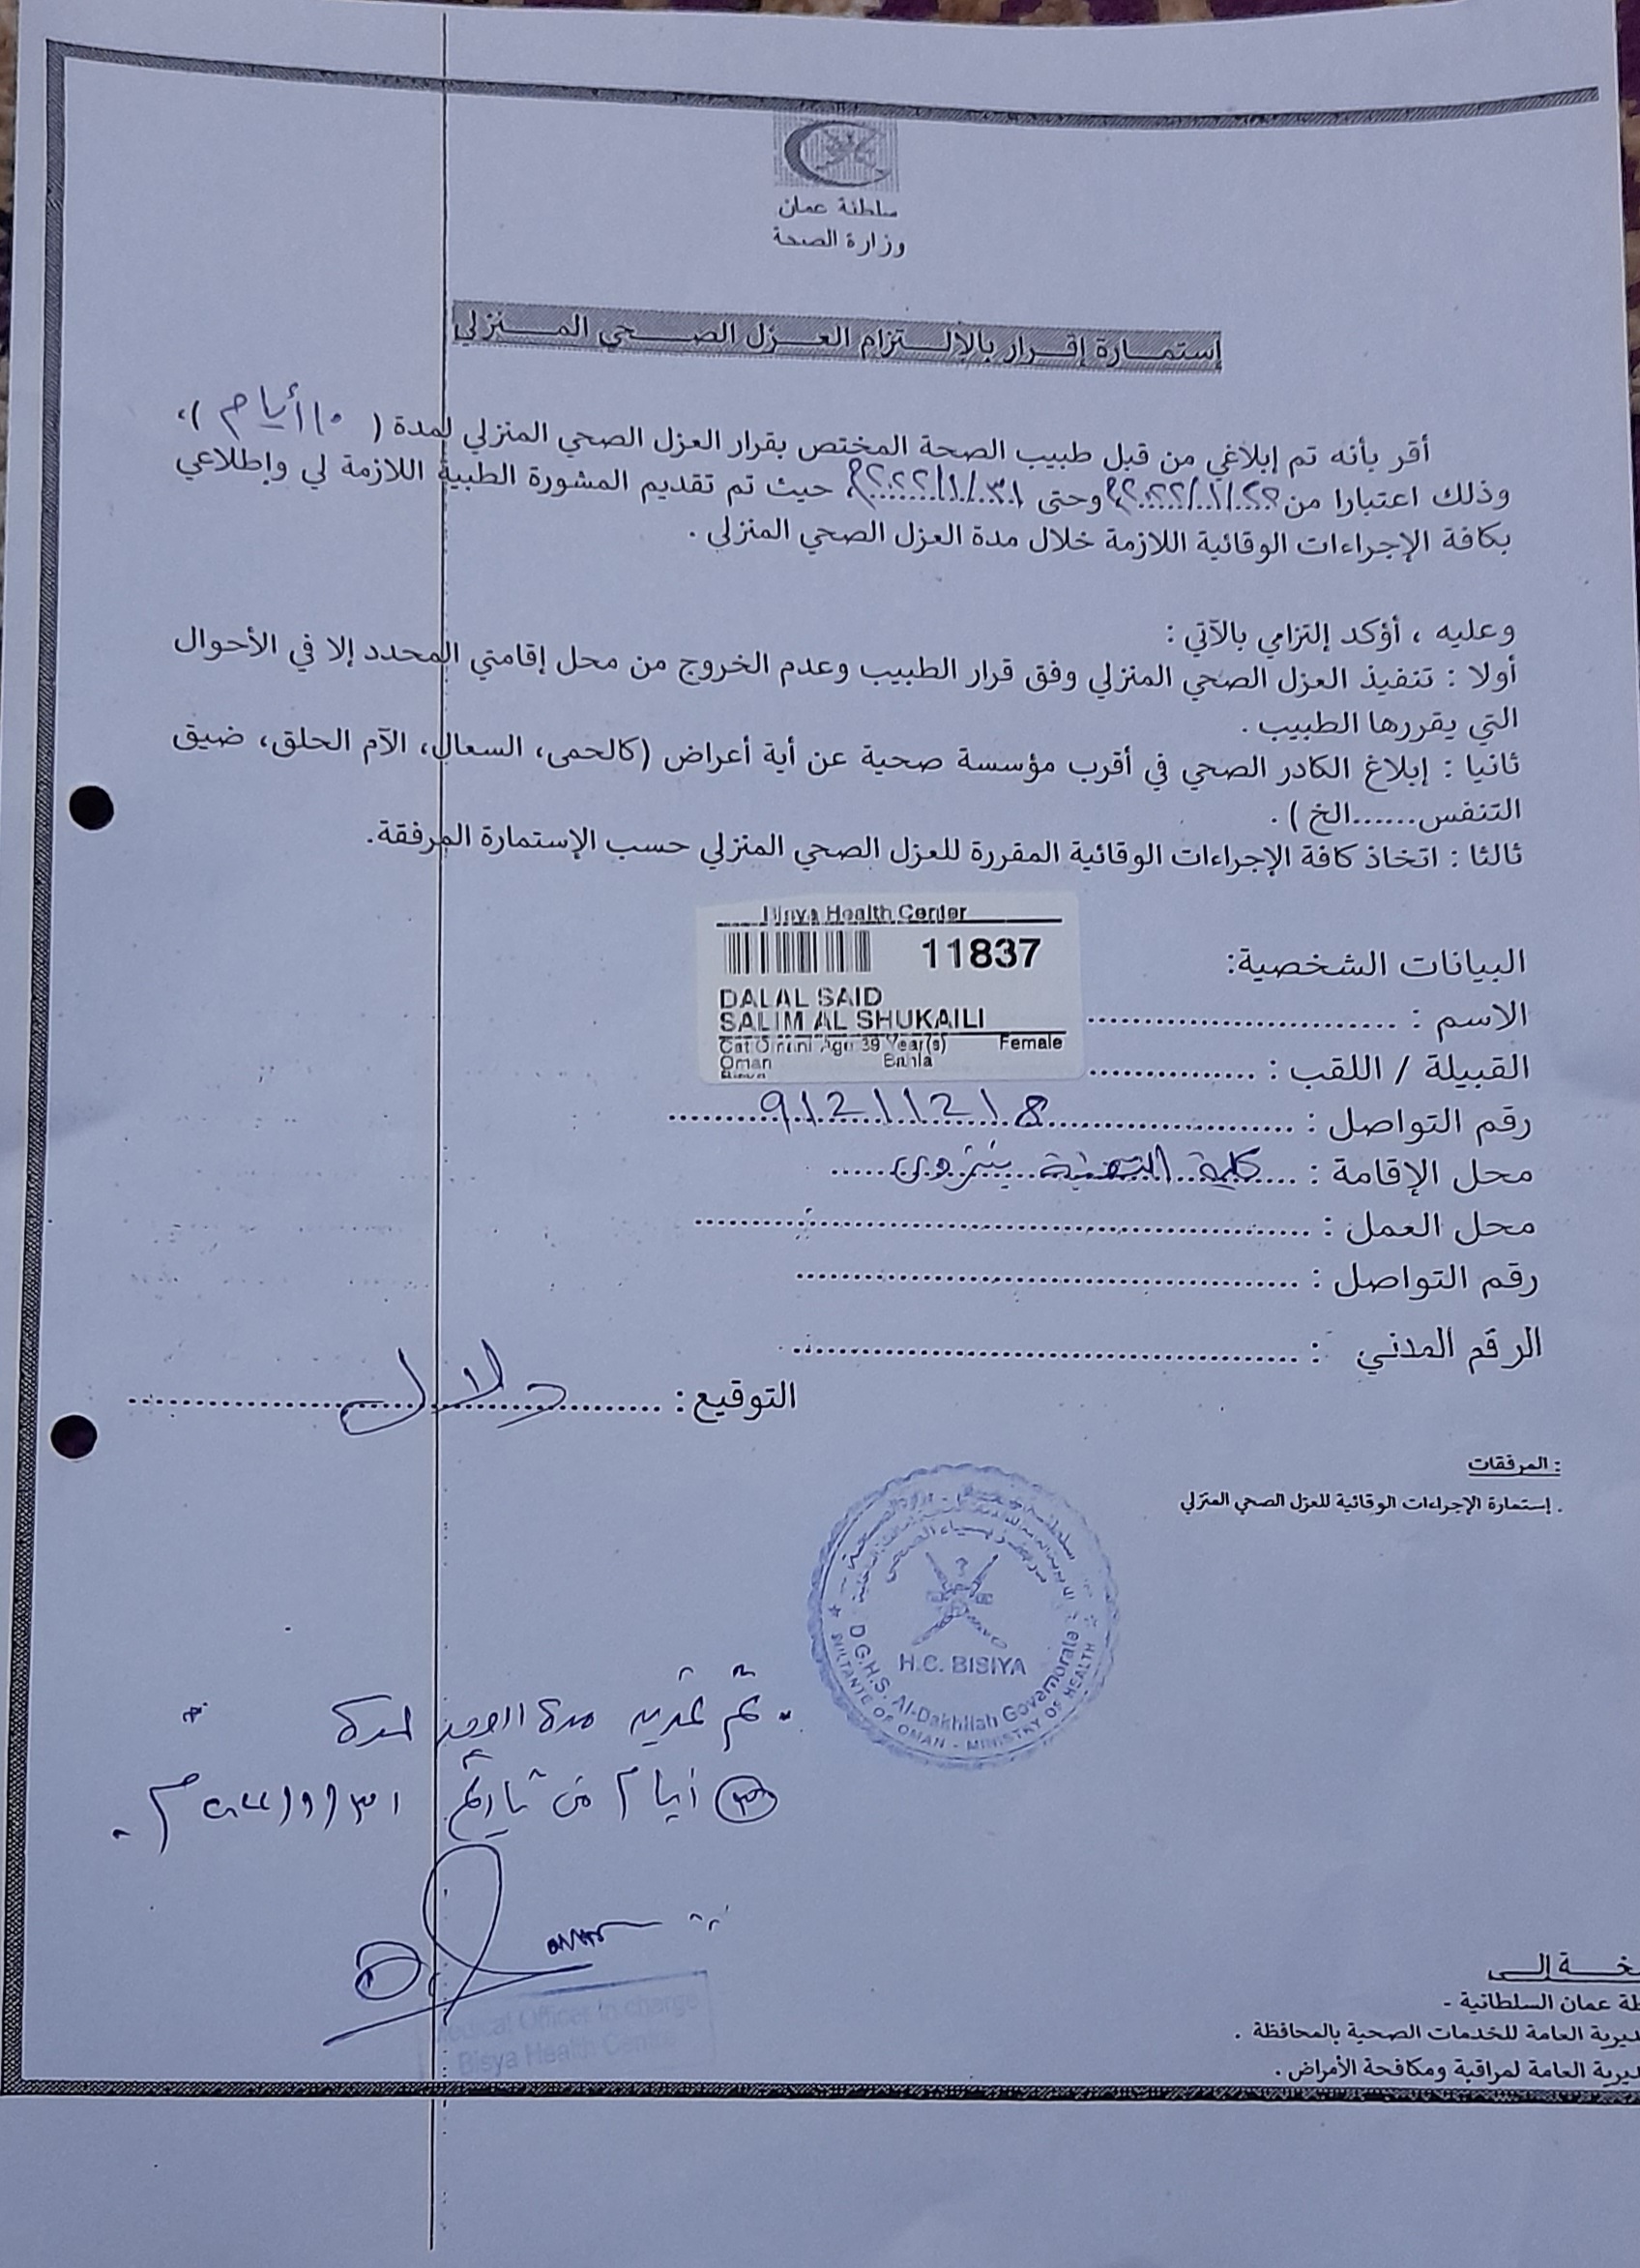 سلطنة عمان
وزارة الصحة
إستمارة إقرار بالإلتزام العزل الصحي المنزلي
أقر بأنه تم إبلاغي من قبل طبيب الصحة المختص بقرار العزل الصحي المنزلي لمدة ( ١٠ أيام )،
وذلك اعتبارا من ٢٢/١/٢٠٢٢ وحتى ٣١/١/٢٠٢٢ حيث تم تقديم المشورة الطبية اللازمة لي وإطلاعي
بكافة الإجراءات الوقائية اللازمة خلال مدة العزل الصحي المنزلي .
وعليه ، أؤكد إلتزامي بالآتي :
أولا : تنفيذ العزل الصحي المنزلي وفق قرار الطبيب وعدم الخروج من محل إقامتي المحدد إلا في الأحوال
التي يقررها الطبيب .
ثانيا : إبلاغ الكادر الصحي في أقرب مؤسسة صحية عن أية أعراض (كالحمى، السعال، الآم الحلق، ضيق
التنفس......الخ ) .
ثالثا : اتخاذ كافة الإجراءات الوقائية المقررة للعزل الصحي المنزلي حسب الإستمارة المرفقة.
Bisya Health Center
11837
DALAL SAID
SALIM AL SHUKAILI
Cat Omani Age 39 Year(s) Female
Oman Bahla
البيانات الشخصية:
الاسم :
القبيلة / اللقب :
رقم التواصل : 91211218
محل الإقامة : كلية التقنية بنزوى
محل العمل :
رقم التواصل :
الرقم المدني :
التوقيع : دلال
المرفقات :
إستمارة الإجراءات الوقائية للعزل الصحي المنزلي .
مركز بسياء الصحي
H.C. BISIYA
D.G.H.S. Al-Dakhiliah Governorate
SULTANTE OF OMAN - MINISTRY OF HEALTH
تم تمديد مدة لمدة
٣ أيام من تاريخ ٣١/١/٢٠٢٢م .
Medical Officer in charge
Bisya Health Centre
خـة إلى
طة عمان السلطانية -
ديرية العامة للخدمات الصحية بالمحافظة .
ديرية العامة لمراقبة ومكافحة الأمراض .